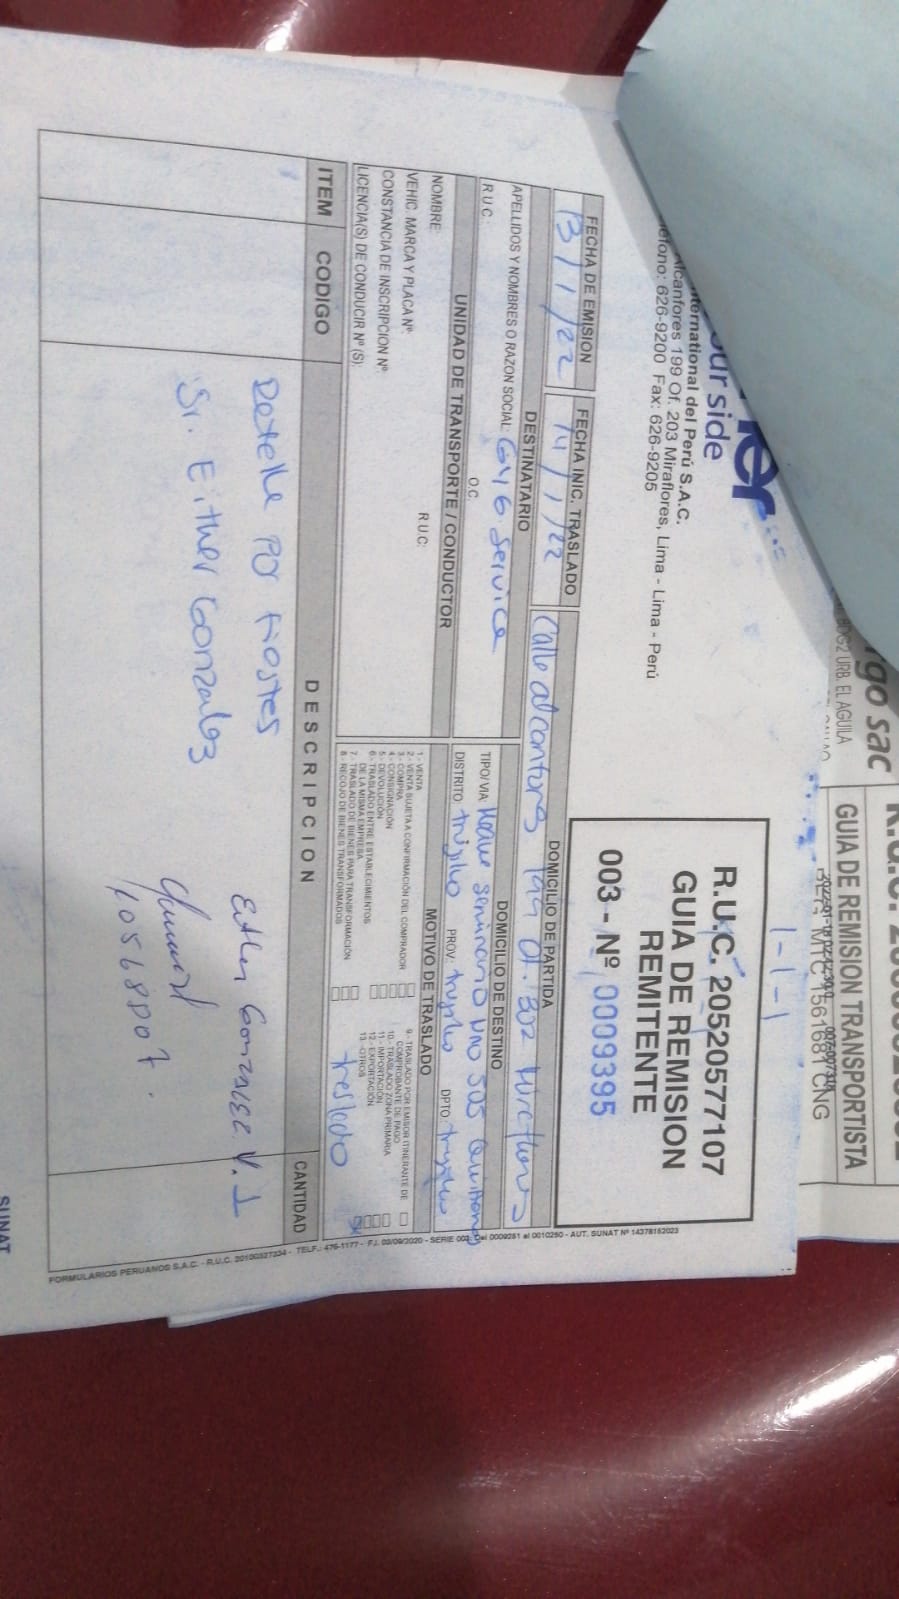 rgo sac
BDG2 URB. EL AGUILA
GUIA DE REMISION TRANSPORTISTA
REG MTC 1561687CNG
1-1-1
our side
nternational del Perú S.A.C.
Alcanfores 199 Of. 203 Miraflores, Lima - Lima - Perú
léfono: 626-9200 Fax: 626-9205
R.U.C. 20520577107
GUIA DE REMISION
REMITENTE
003 - Nº 0009395
FECHA DE EMISION
13/1/22
FECHA INIC. TRASLADO
14/1/22
DOMICILIO DE PARTIDA
Calle alcanfores 199 of. 302 Miraflores
DESTINATARIO
APELLIDOS Y NOMBRES O RAZON SOCIAL: G4G Service
R.U.C.:
O.C.
DOMICILIO DE DESTINO
TIPO/VIA: seminario Nro 505
DISTRITO: trujillo PROV: trujillo DPTO: trujillo
UNIDAD DE TRANSPORTE / CONDUCTOR
NOMBRE: R.U.C:
VEHIC. MARCA Y PLACA Nº:
CONSTANCIA DE INSCRIPCION Nº:
LICENCIA(S) DE CONDUCIR Nº (S):
MOTIVO DE TRASLADO
1.- VENTA
2.- VENTA SUJETA A CONFIRMACIÓN DEL COMPRADOR
3.- COMPRA
4.- CONSIGNACIÓN
5.- DEVOLUCIÓN
6.- TRASLADO ENTRE ESTABLECIMIENTOS
DE LA MISMA EMPRESA
7.- TRASLADO DE BIENES PARA TRANSFORMACIÓN
8.- RECOJO DE BIENES TRANSFORMADOS
9.- TRASLADO POR EMISOR ITINERANTE DE
COMPROBANTE DE PAGO
10.- TRASLADO ZONA PRIMARIA
11.- IMPORTACIÓN
12.- EXPORTACIÓN
13.- OTROS
traslado
ITEM CODIGO DESCRIPCION CANTIDAD
Detalle por fiestas
Sr. Either Gonzales
1
FORMULARIOS PERUANOS S.A.C. - R.U.C. 20100327334 - TELF.: 476-1177 - F.I. 03/09/2020 - SERIE 003 Del 0009251 al 0010250 - AUT. SUNAT Nº 14378162023
SUNAT